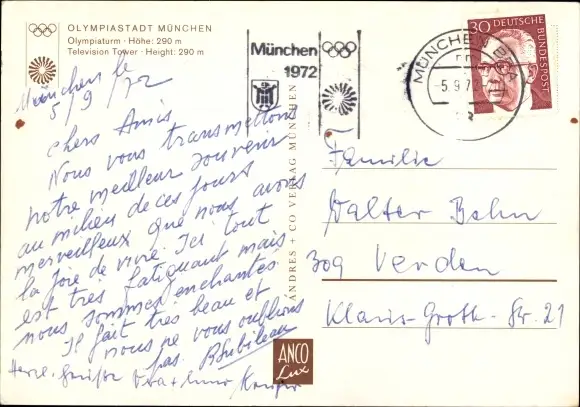 OLYMPIASTADT MÜNCHEN
Olympiaturm · Höhe: 290 m
Television Tower · Height: 290 m
München le
5/9/72
Chers Amis
Nous vous transmettons
notre meilleur souvenir
au milieu de ces jours
merveilleux que nous avons
la joie de vivre. Ici tout
est très fatiguant mais
nous sommes enchantés
Il fait très beau et
nous ne vous oublions
pas.
Herzl. Grüße
ANDRES + CO VERLAG MÜNCHEN
ANCO
Lux
München
1972
MÜNCHEN
-5.9.72
30 DEUTSCHE
BUNDESPOST
Familie
Walter Behn
309 Verden
Klaus-Groth-Str. 21